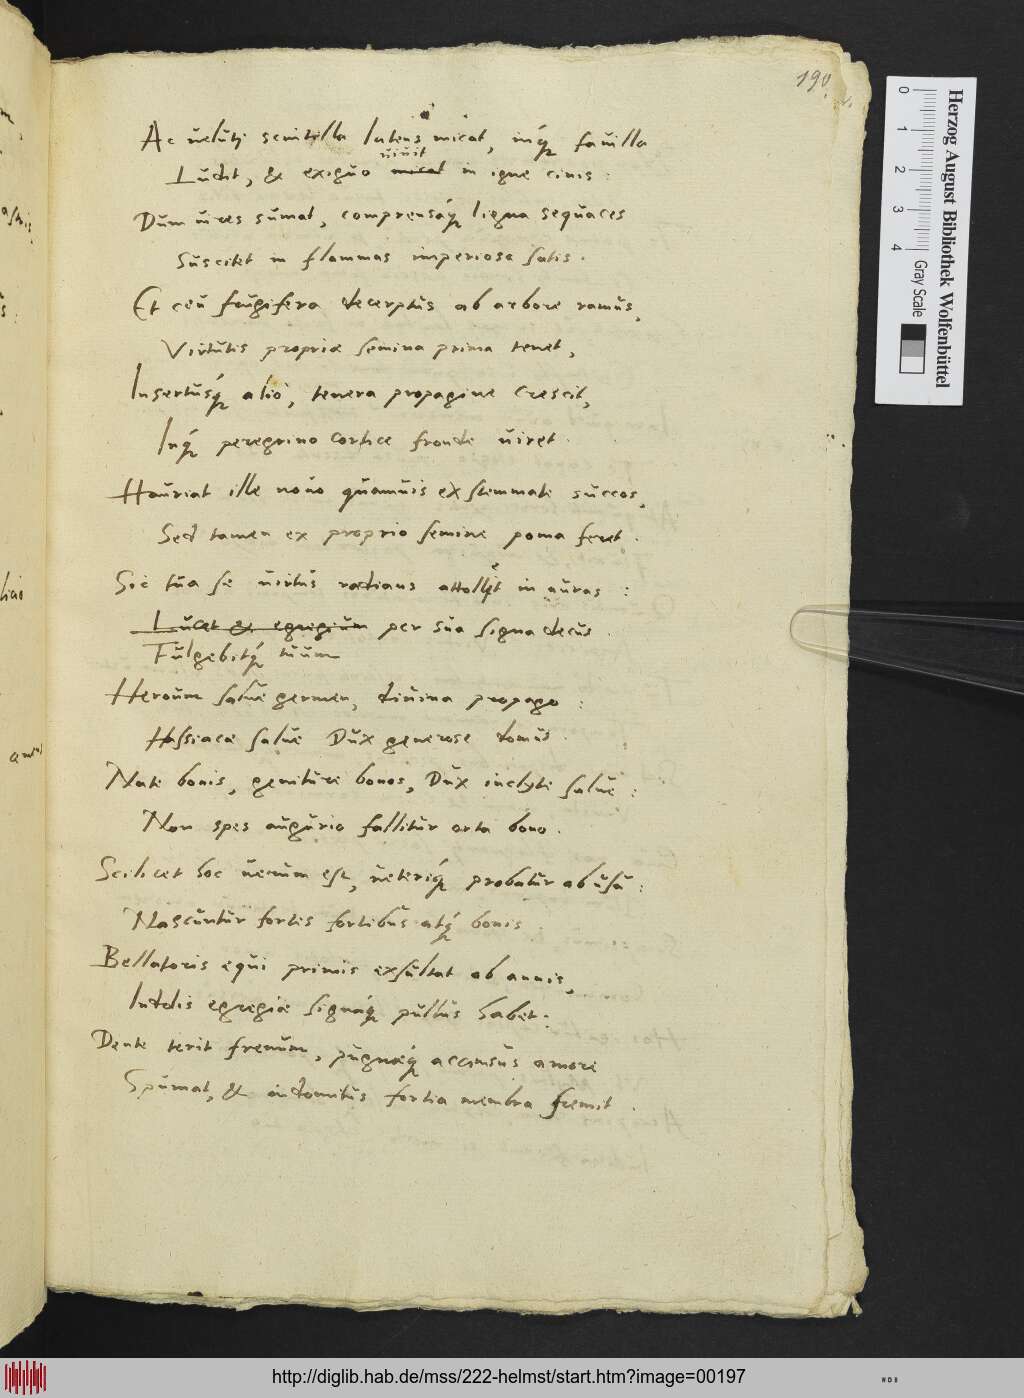 190
Ac ueluti scintilla latens micat, inq́ȝ fauilla
uiuit
Ludit, & exiguo micat in igne cinis :
Dum uires sumat, comprensaq́ȝ ligna sequaces
Suscitet in flammas imperiosa satis .
Et ceu frugifera decerptus ab arbore ramus,
Virtutis propriæ semina prima tenet,
Insertusq́ȝ alio, tenera propagine crescit,
Inq́ȝ peregrino cortice fronde uiret .
Hauriat ille nouo quamuis ex stemmate succos,
Sed tamen ex proprio semine poma feret .
Sic tua se uirtus radians attollet in auras :
Lucet & egregium per sua signa decus .
Fulgebitq́ȝ tuum
Heroum salue germen, diuina propago :
Hassiacæ salue Dux generose domus .
Nate bonis, geniture bonos, Dux inclyte salue :
Non spes augurio fallitur orta bono .
Scilicet hoc uerum est, ueteriq́ȝ probatur ab usu :
Nascuntur fortes fortibus atq́ȝ bonis .
Bellatoris equi primis exsultat ab annis,
Indolis egregiæ signaq́ȝ pullus habet :
Dente terit frenum, pugnæq́ȝ accensus amore
Spumat, & indomitus fortia membra fremit .
Herzog August Bibliothek Wolfenbüttel
Gray Scale
0 1 2 3 4
http://diglib.hab.de/mss/222-helmst/start.htm?image=00197